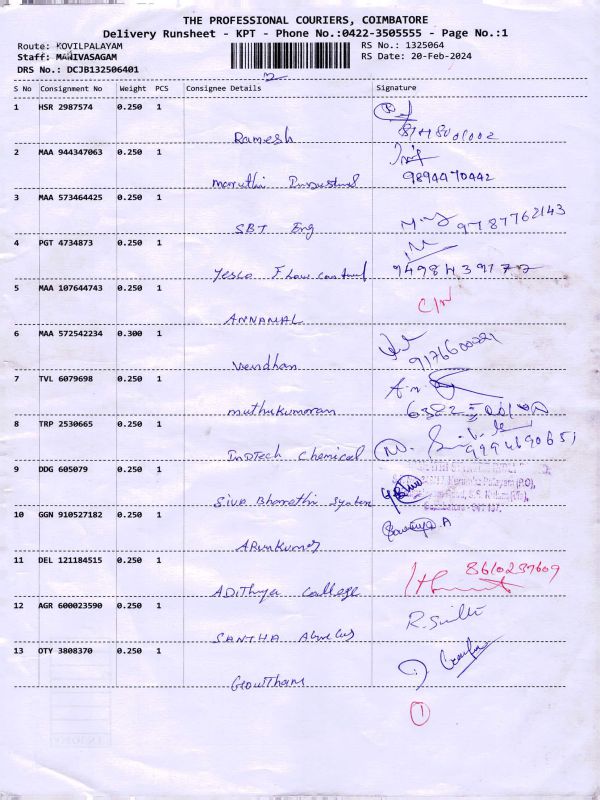 THE PROFESSIONAL COURIERS, COIMBATORE
Delivery Runsheet - KPT - Phone No.:0422-3505555 - Page No.:1
Route: KOVILPALAYAM
RS No.: 1325064
Staff: MANIVASAGAM
RS Date: 20-Feb-2024
DRS No.: DCJB132506401
2
S No Consignment No Weight PCS Consignee Details Signature
1 HSR 2987574 0.250 1
Ramesh
2 MAA 944347063 0.250 1
Maruthi
9894470442
3 MAA 573464425 0.250 1
SBT Eng 9787762143
4 PGT 4734873 0.250 1
5 MAA 107644743 0.250 1
C/N
ANNAMAL
6 MAA 572542234 0.300 1
Vendhan
7 TVL 6079698 0.250 1
muthukumaran
8 TRP 2530665 0.250 1
Indtech Chemical 9994690651
9 DDG 605079 0.250 1
Siva Bharathi System
10 GGN 910527182 0.250 1
ARunKumar
11 DEL 121184515 0.250 1
8610237609
ADithya College
12 AGR 600023590 0.250 1
SANTHA
13 OTY 3808370 0.250 1
Gowtham
1